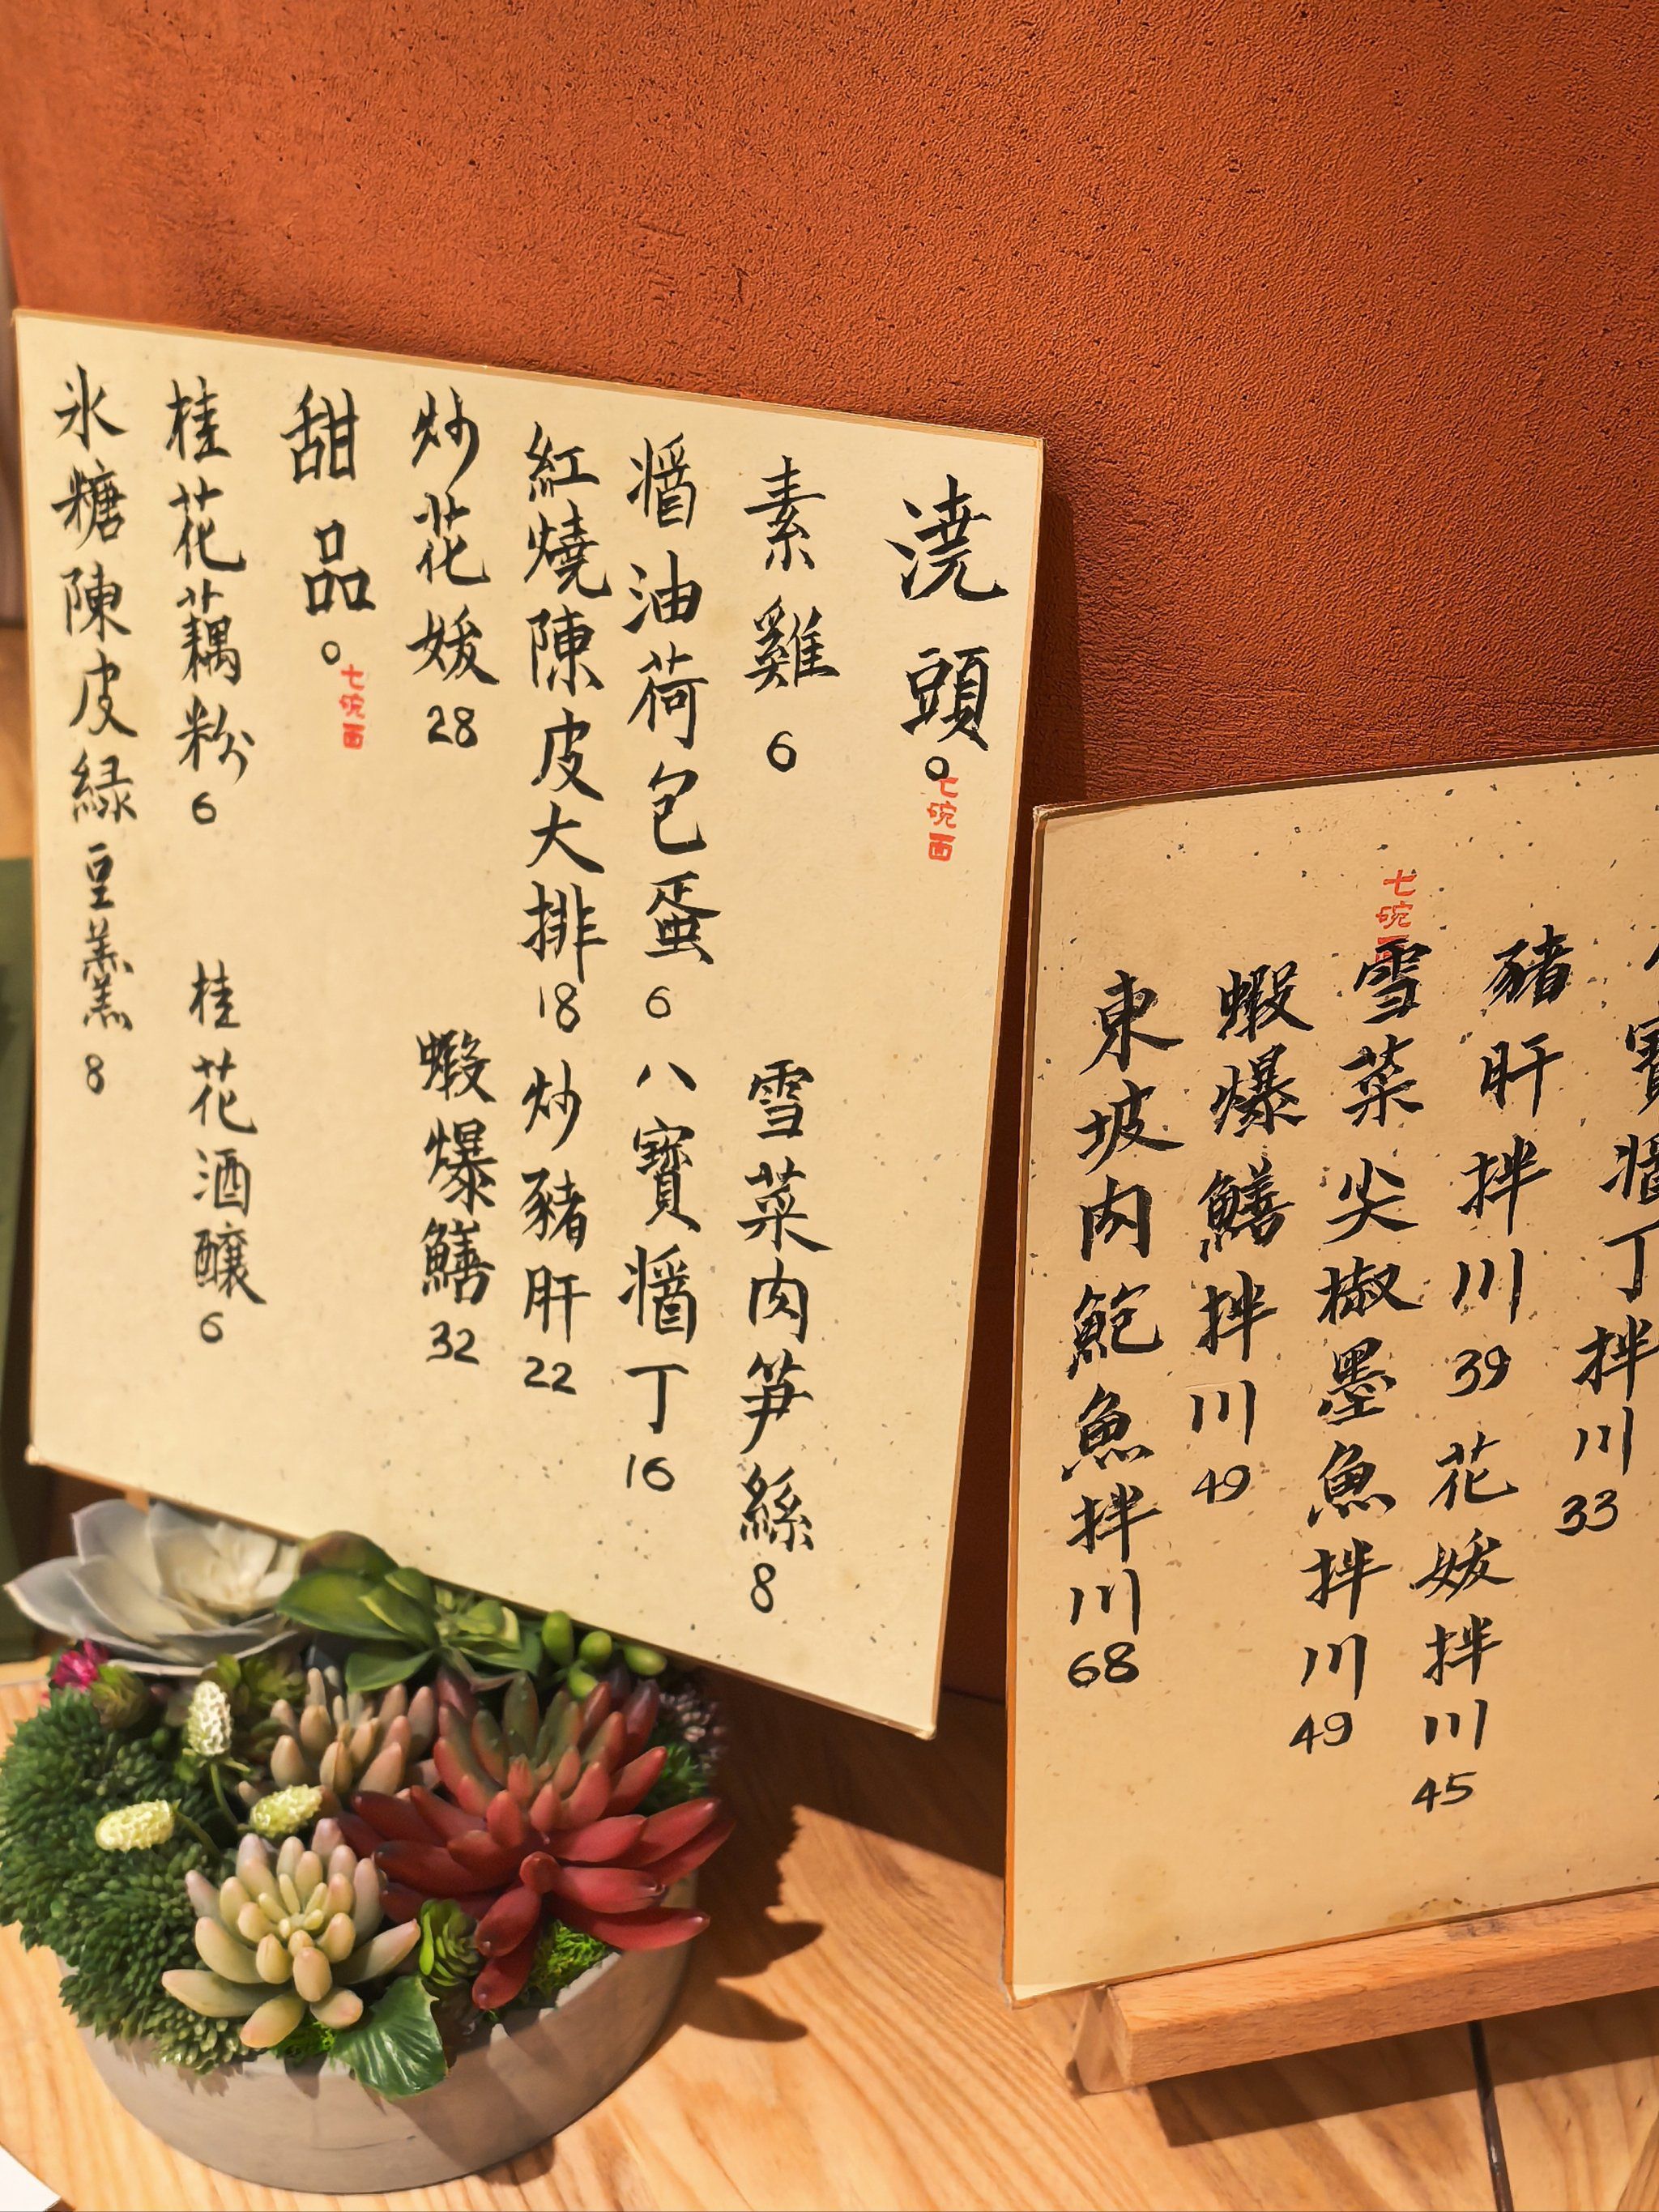 澆頭。
七碗面
素雞 6
雪菜肉筍絲 8
醬油荷包蛋 6
八寶醬丁 16
紅燒陳皮大排 18
炒豬肝 22
炒花媛 28
蝦爆鱔 32
甜品。
七碗面
桂花藕粉 6
桂花酒釀 6
氷糖陳皮緑豆羹 8
寶醬丁拌川 33
豬肝拌川 39
花媛拌川 45
七碗面
雪菜尖椒墨魚拌川 49
蝦爆鱔拌川 49
東坡肉鮑魚拌川 68